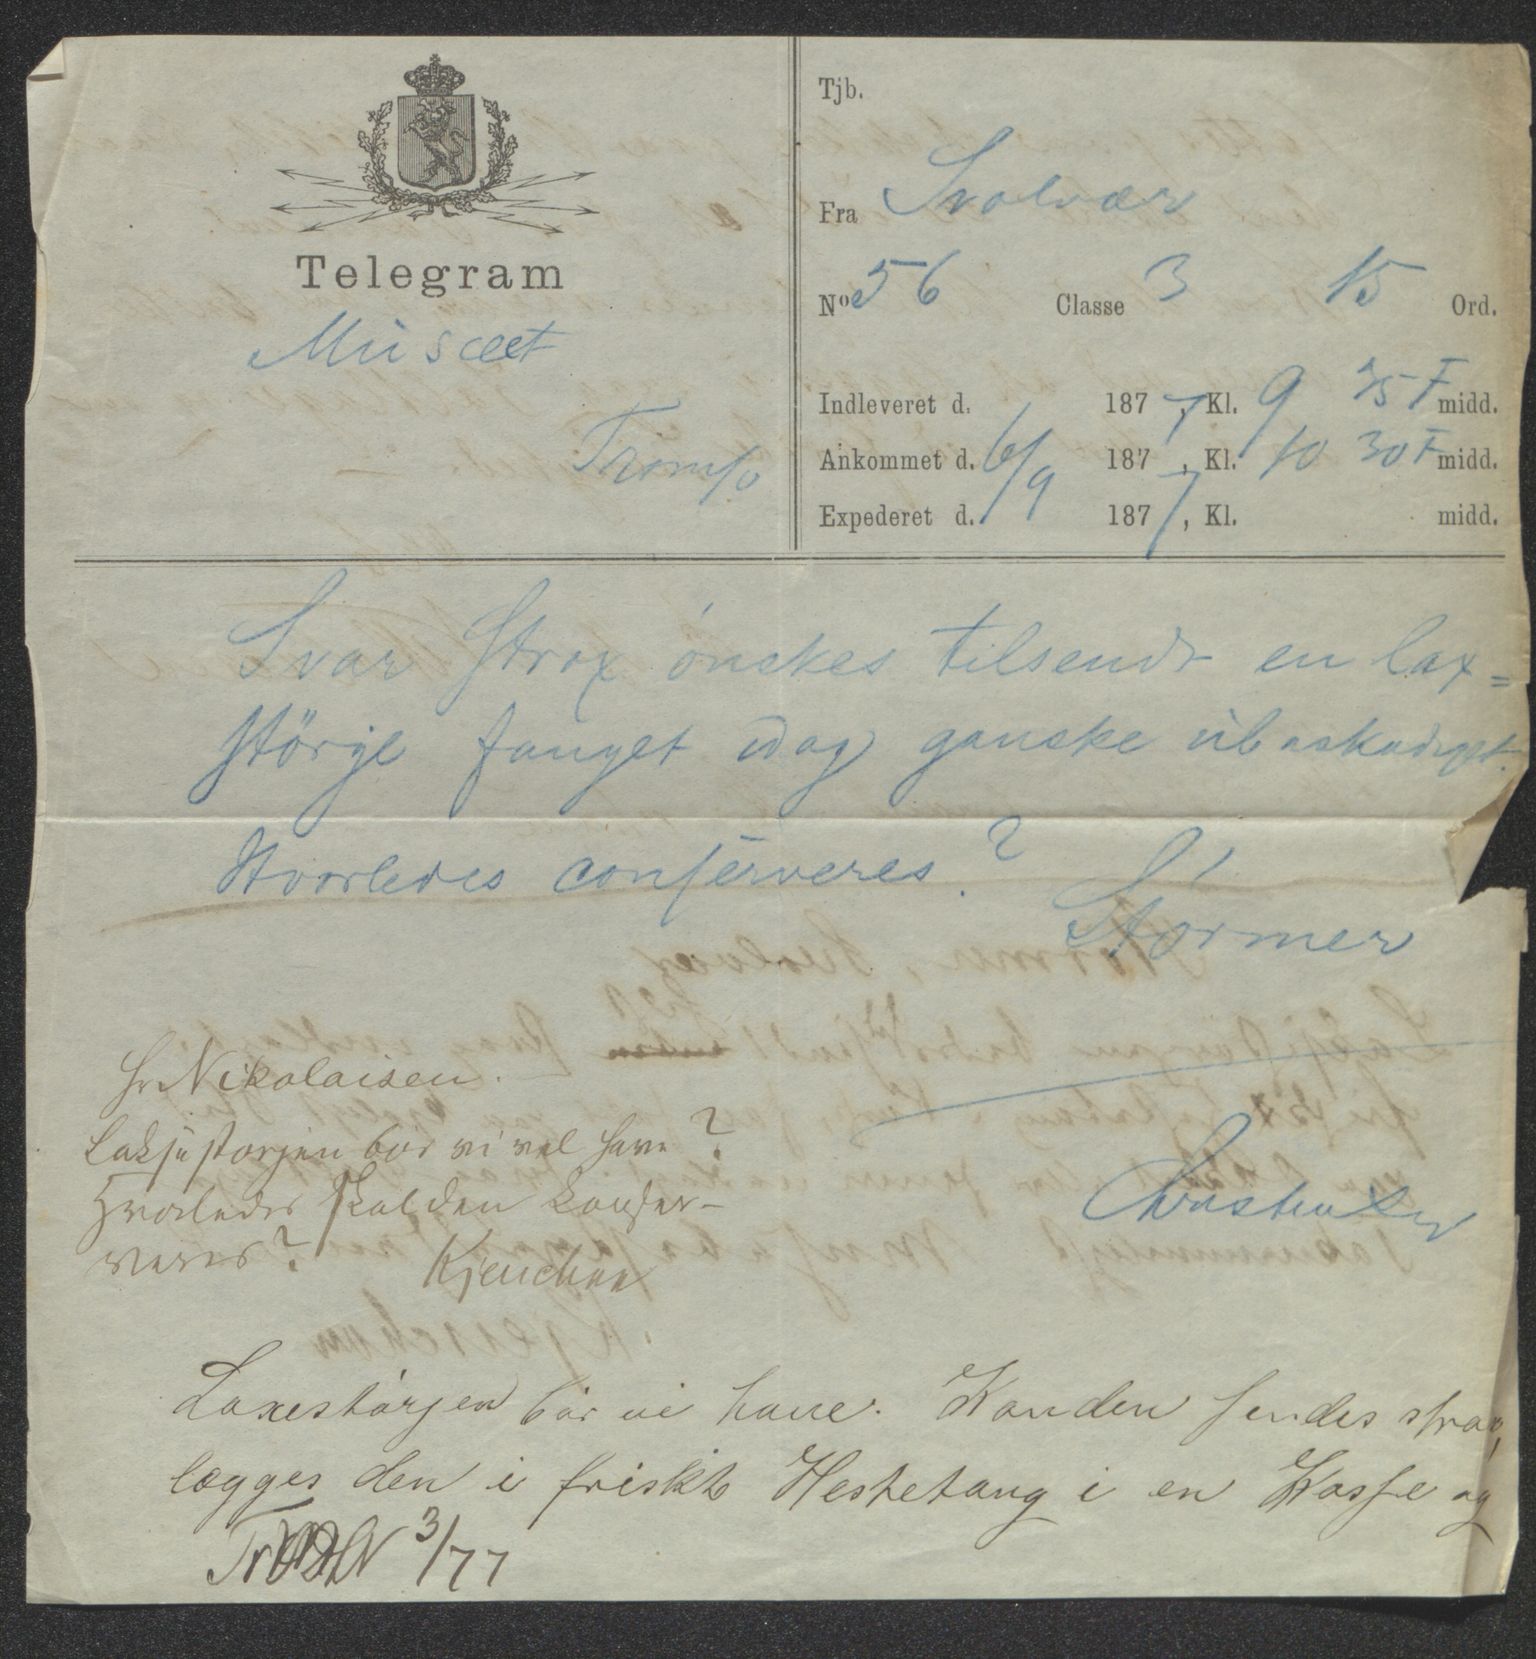 Telegram
Museet
Tromsø
Tjb.
Fra Svolvær
No 56 Classe 3 15 Ord.
Indleveret d. 187 7, Kl. 9 35 F midd.
Ankommet d. 6/9 187 7, Kl. 10 30 F midd.
Expederet d. 187 7, Kl. midd.
Svar strax ønskes tilsendt en lax=
størje fanget idag ganske ubeskadiget.
Hvorledes conserveres?
Størmer
Hr Nikolaisen.
Laksestørjen bør vi vel have?
Hvorledes skal den konser-
veres? Kjeuchen
Laxestørjen bør vi have. Kan den sendes strax,
lægges den i friskt Hestetang i en Kasse og
3/77